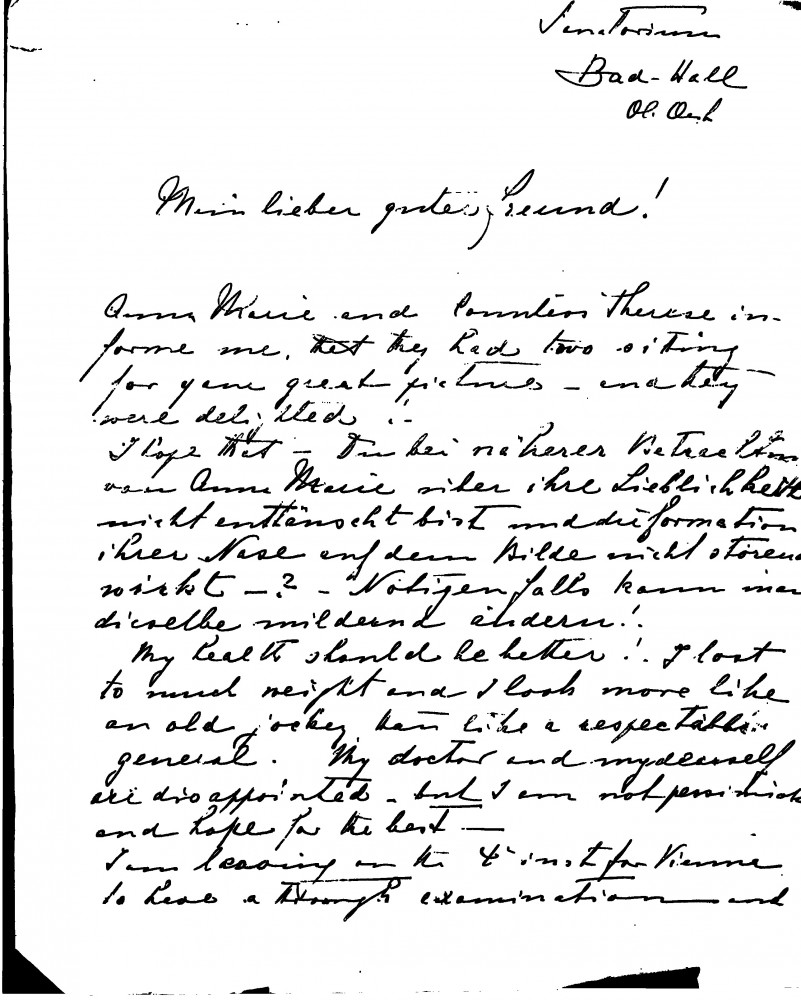 Sanatorium
Bad-Hall
Ob. Oest.
Mein lieber guter Freund!
Anna Marie and Countess Therese in-
forme me, that they had two sitting
for your great pictures – and they
were delighted !-
I hope that – Du bei näherer Betrachtung
von Anna Marie über ihre Lieblichkeit
nicht enttäuscht bist und die formation
ihrer Nase auf dem Bilde nicht störend
wirkt –? – Nötigenfalls kann man
dieselbe mildernd ändern!.
My health should be better !. I lost
to much weight and I look more like
an old jockey than like a respectable
general. My doctor and mydearself
are disappointed – but I am not pessimistic
and hope for the best –
I am leaving on the 4' inst for Vienne
to have a through examination and